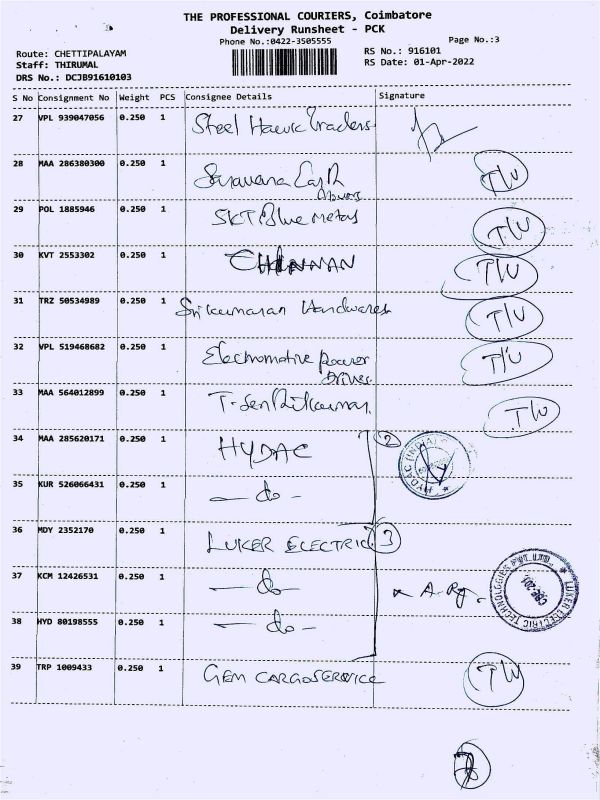 THE PROFESSIONAL COURIERS, Coimbatore
Delivery Runsheet - PCK
Phone No.:0422-3505555
Page No.:3
Route: CHETTIPALAYAM
RS No.: 916101
Staff: THIRUMAL
RS Date: 01-Apr-2022
DRS No.: DCJB91610103
S No Consignment No Weight PCS Consignee Details Signature
27 VPL 939047056 0.250 1 Steel Traders
28 MAA 286380300 0.250 1 Saravana T/U
29 POL 1885946 0.250 1 SKT Blue Metals T/U
30 KVT 2553302 0.250 1 T/U
31 TRZ 50534989 0.250 1 Sri Kumaran Hardwares T/U
32 VPL 519468682 0.250 1 Electromotive Power T/U
Drives
33 MAA 564012899 0.250 1 T/U
34 MAA 285620171 0.250 1 HYDAC 2 HYDAC (INDIA)
35 KUR 526066431 0.250 1 — do -
36 MDY 2352170 0.250 1 LUKER ELECTRIC 3
37 KCM 12426531 0.250 1 — do - LUKER ELECTRIC TECHNOLOGIES PVT. LTD.
38 HYD 80198555 0.250 1 — do -
39 TRP 1009433 0.250 1 GEM CARGOSERVICE T/U